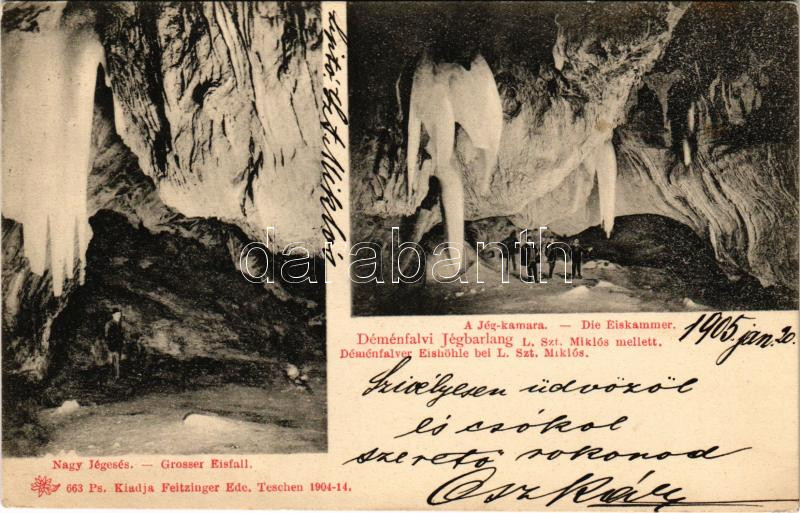 Liptó Szt. Miklós
A Jég-kamara. — Die Eiskammer.
Déménfalvi Jégbarlang L. Szt. Miklós mellett.
Déménfalver Eishöhle bei L. Szt. Miklós.
1905 jan. 20.
Szivélyesen üdvözöl
és csókol
szerető rokonod
Nagy Jégesés. — Grosser Eisfall.
663 Ps. Kiadja Feitzinger Ede, Teschen 1904-14.
darabanth